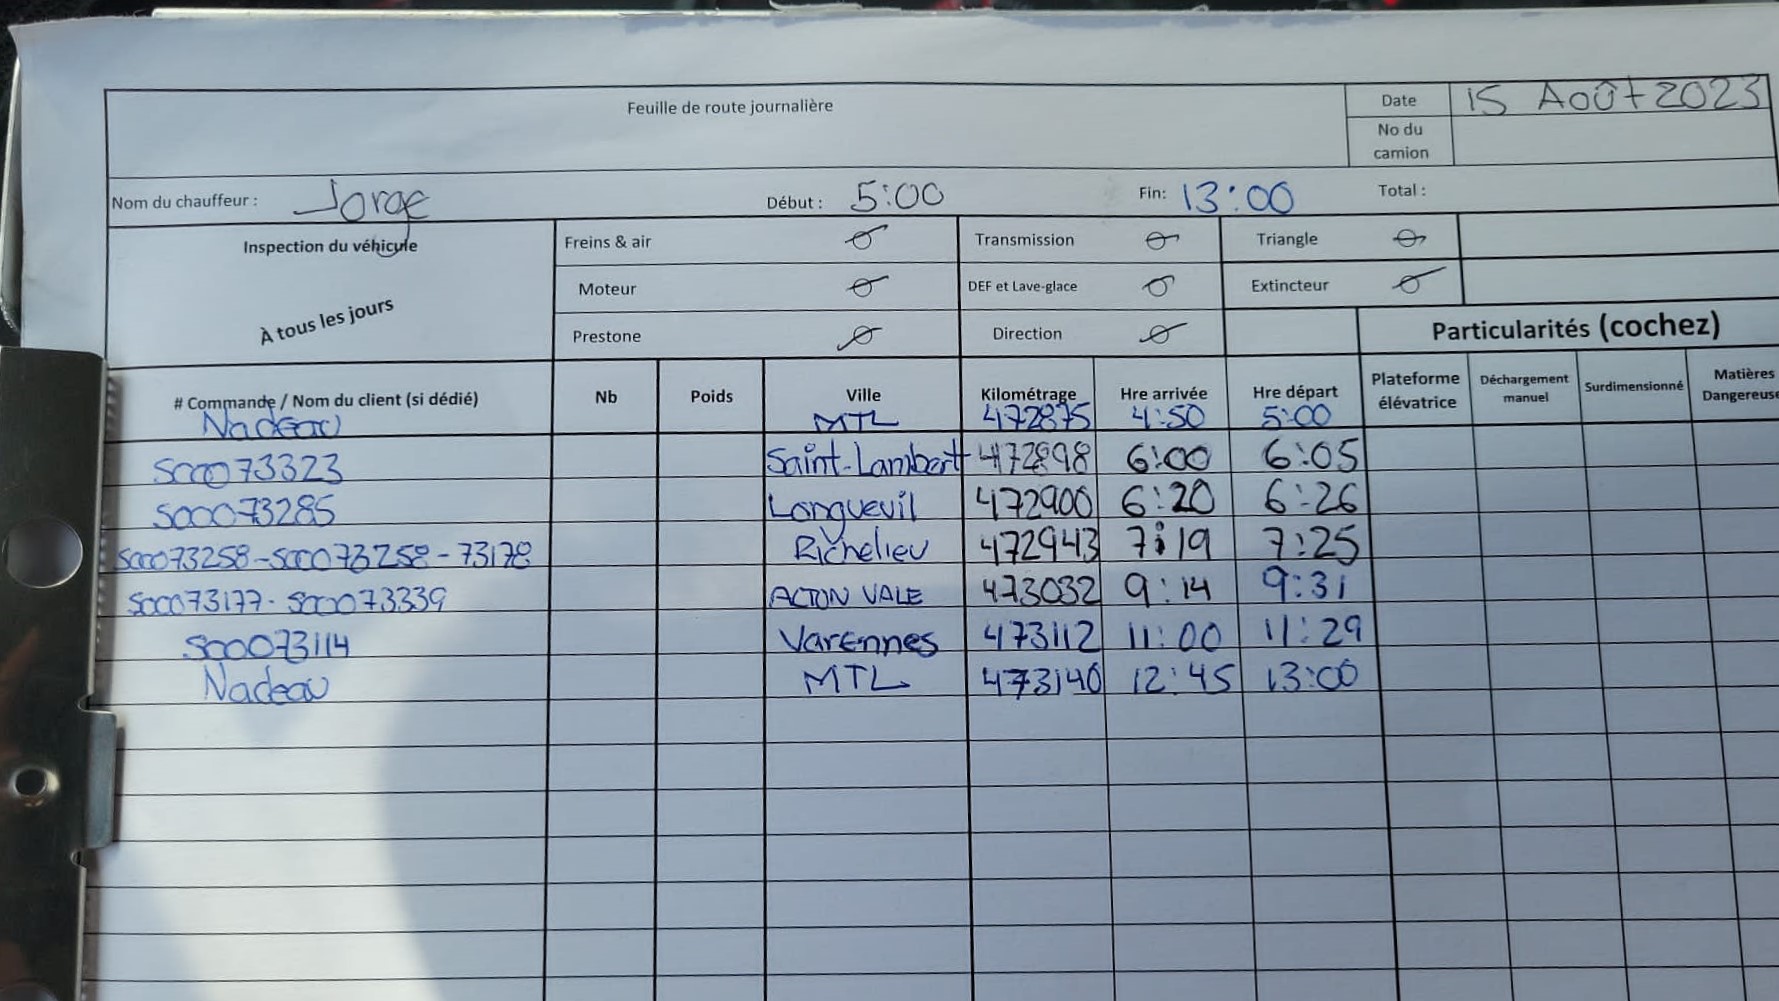 Feuille de route journalière
Date 15 Août 2023
No du camion
Nom du chauffeur : Jorge Début : 5:00 Fin: 13:00 Total :
Inspection du véhicule
À tous les jours
Freins & air Transmission Triangle
Moteur DEF et Lave-glace Extincteur
Prestone Direction
Particularités (cochez)
# Commande / Nom du client (si dédié) Nb Poids Ville Kilométrage Hre arrivée Hre départ Plateforme élévatrice Déchargement manuel Surdimensionné Matières Dangereuse
Nadeau MTL 472875 4:50 5:00
SO0073323 Saint-Lambert 472898 6:00 6:05
SO0073285 Longueuil 472900 6:20 6:26
SO0073258-SO0073258-73178 Richelieu 472943 7:19 7:25
SO0073177-SO0073339 ACTON VALE 473032 9:14 9:31
SO0073114 Varennes 473112 11:00 11:29
Nadeau MTL 473140 12:45 13:00